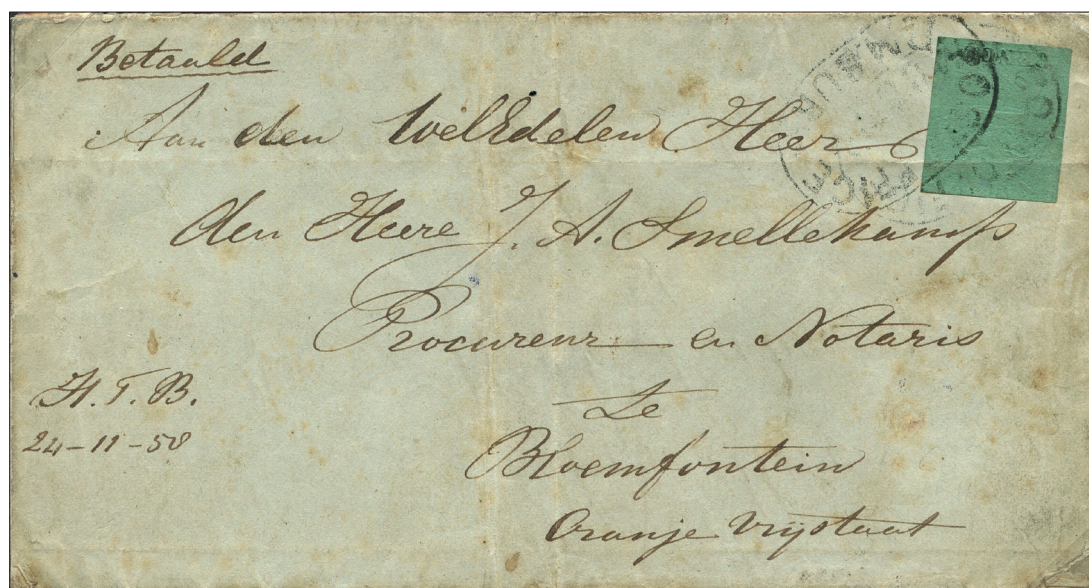 Betaald
Aan den WelEdelen Heer
den Heere J. A. Smellekamp
Procureur en Notaris
te
Bloemfontein
Oranje Vrijstaat
H. T. B.
24-11-58